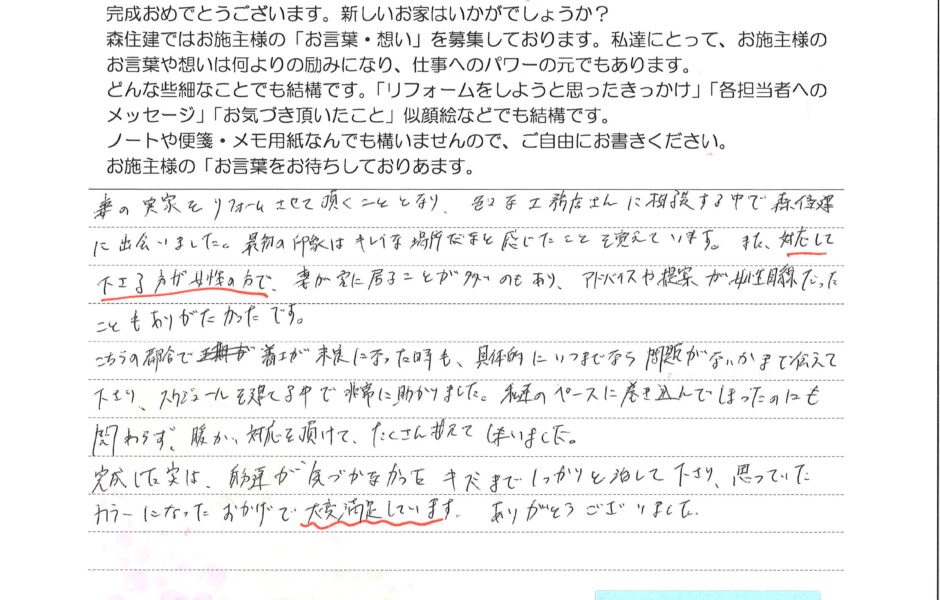 完成おめでとうございます。新しいお家はいかがでしょうか？
森住建ではお施主様の「お言葉・想い」を募集しております。私達にとって、お施主様の
お言葉や想いは何よりの励みになり、仕事へのパワーの元でもあります。
どんな些細なことでも結構です。「リフォームをしようと思ったきっかけ」「各担当者への
メッセージ」「お気づき頂いたこと」似顔絵などでも結構です。
ノートや便箋・メモ用紙なんでも構いませんので、ご自由にお書きください。
お施主様の「お言葉をお待ちしておりあます。
妻の実家をリフォームさせて頂くこととなり、色々な工務店さんに相談する中で森住建
に出会いました。最初の印象はキレイな場所だなと感じたことを覚えています。また、対応して
下さる方が女性の方で、妻が家に居ることが多いのもあり、アドバイスや提案が女性目線だった
こともありがたかったです。
こちらの都合で 着工が未定になった時も、具体的にいつまでなら問題がないかまで伝えて
下さり、スケジュールを建てる中で非常に助かりました。私達のペースに巻き込んでしまったのにも
関わらず、暖かい対応を頂けて、たくさん甘えてしまいました。
完成した家は、私達が気づかなかったキズまでしっかりと治して下さり、思っていた
カラーになったおかげで大変満足しています。ありがとうございました。